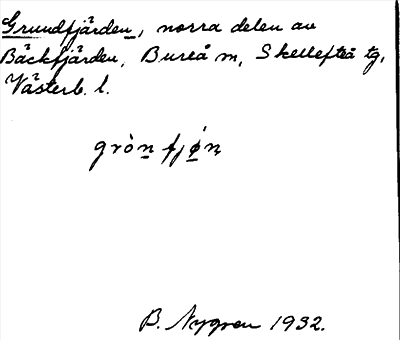 Grundfjärden, norra delen av
Bäckfjärden, Bureå m, Skellefteå tg,
Västerb. l.
gròn fjǿn
B. Nygren 1932.